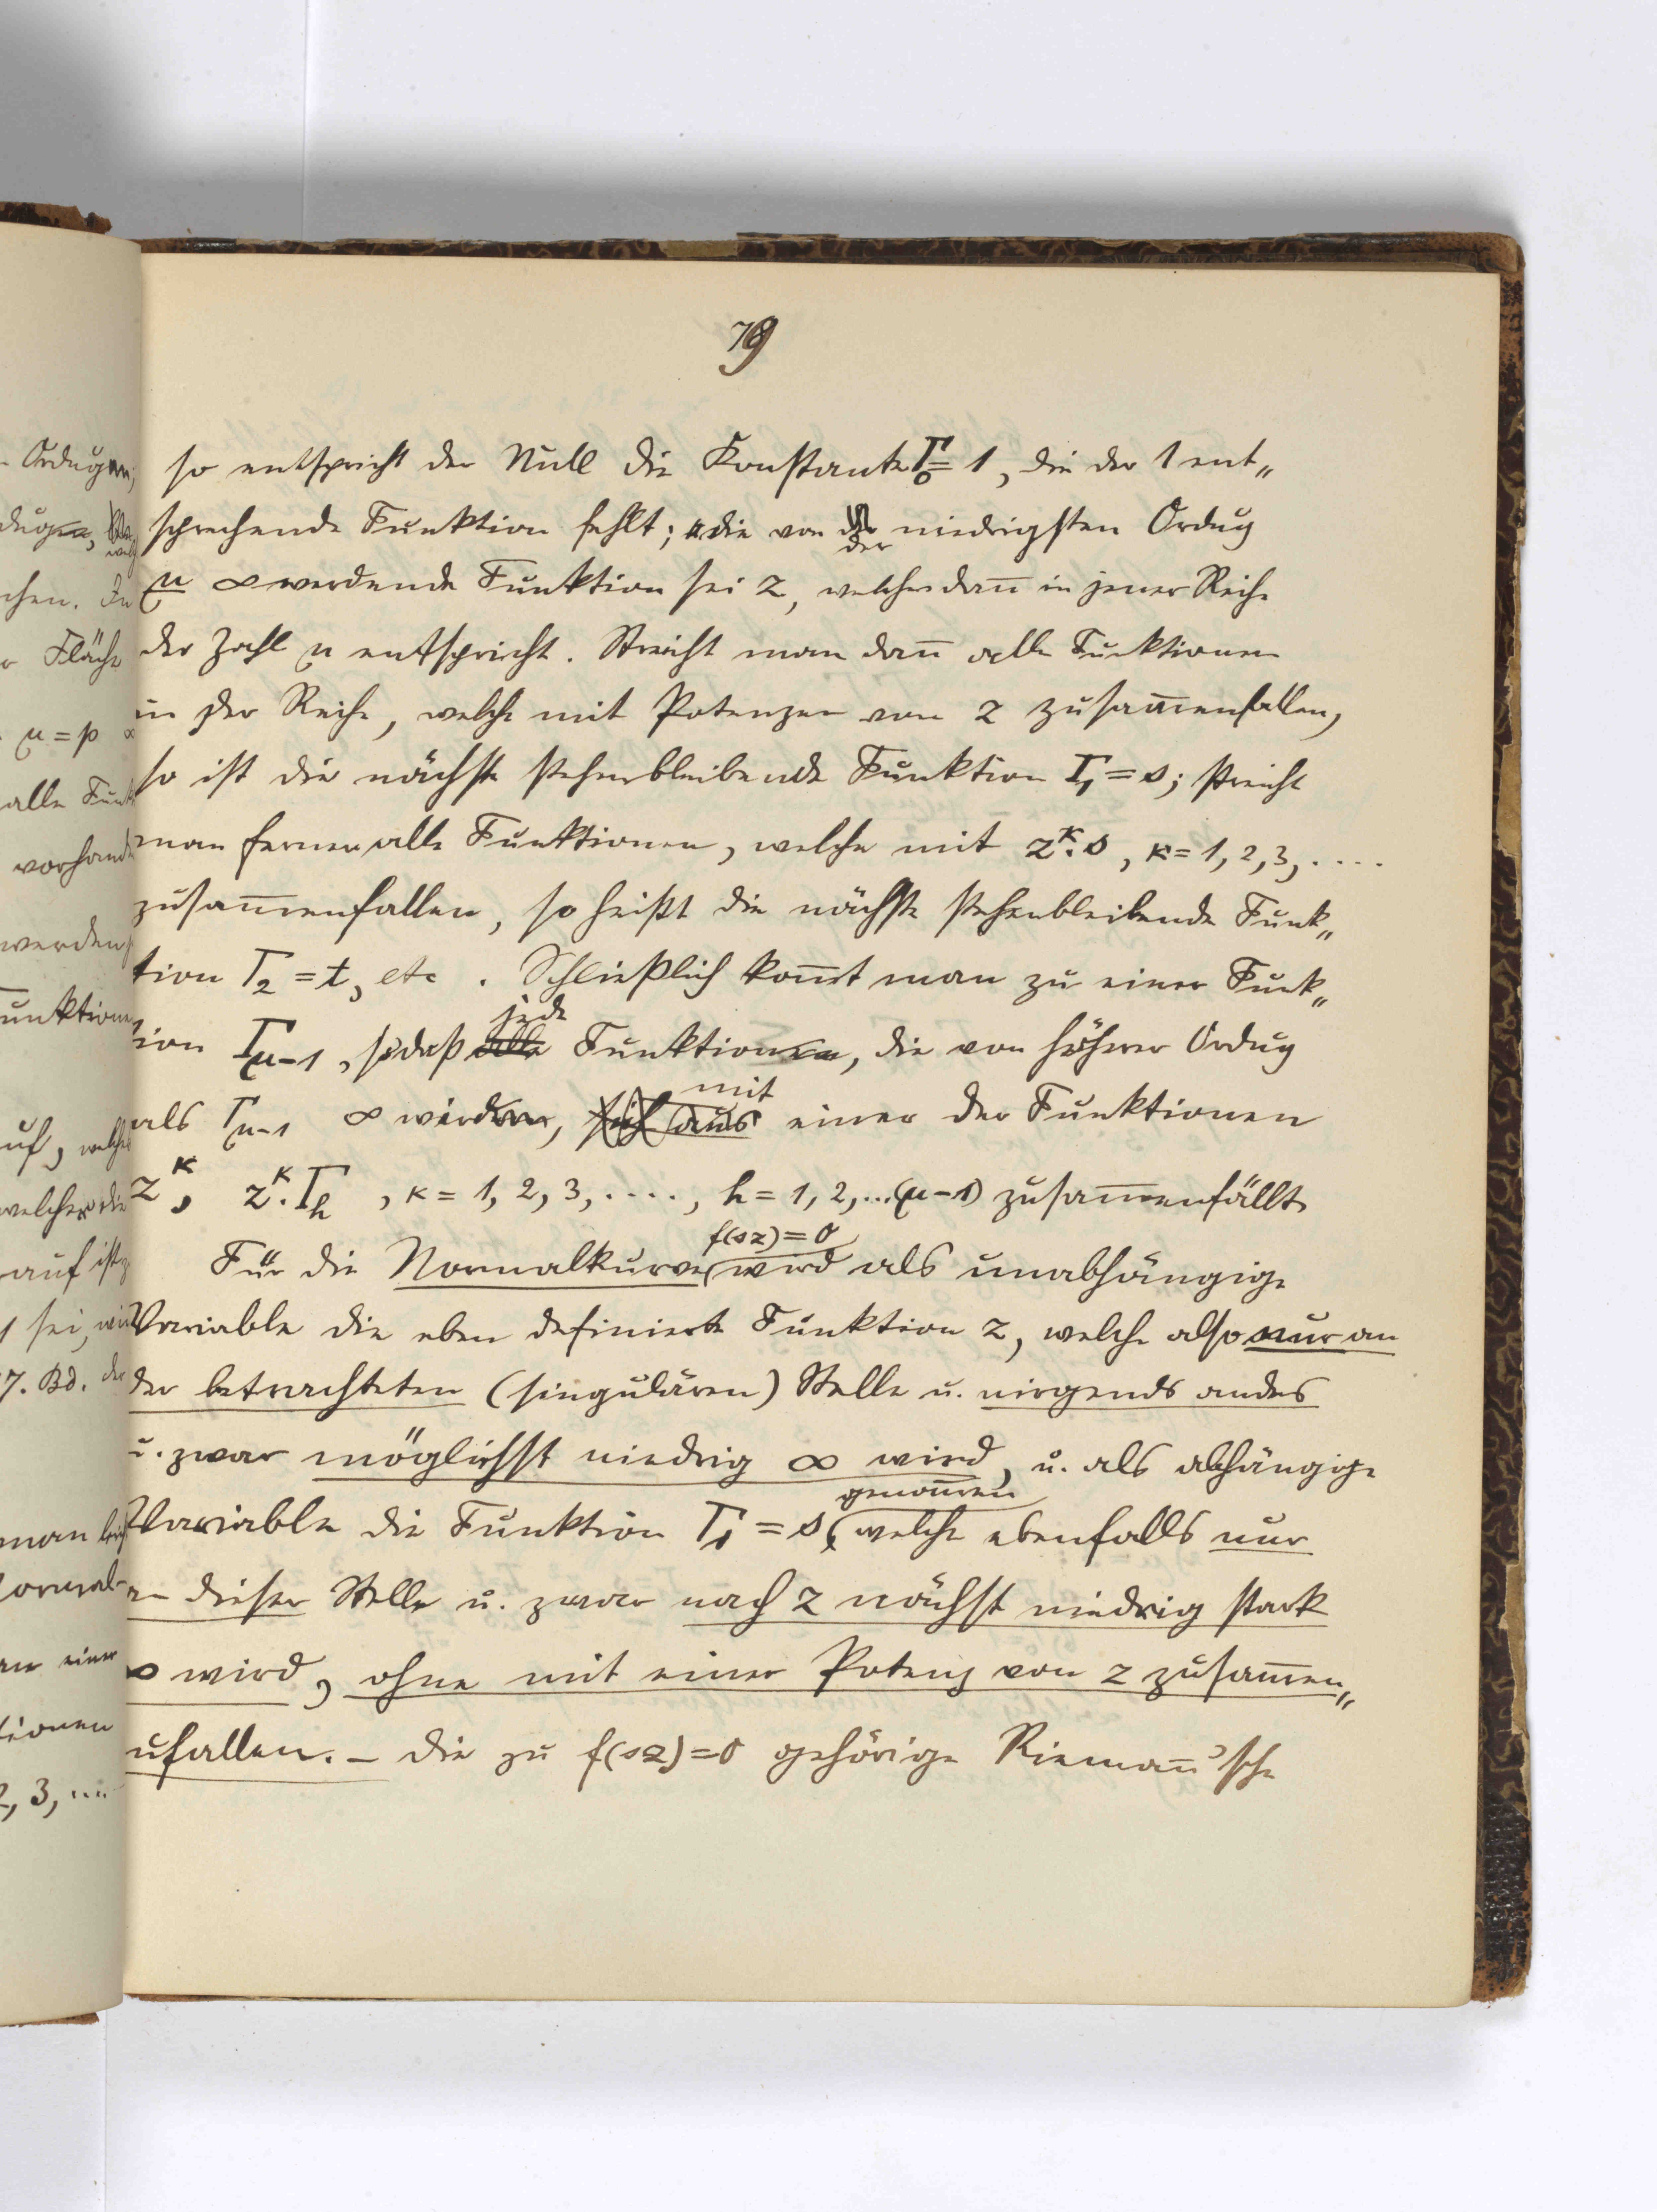 79
so entspricht der Null die Konstante Γ₀ = 1, die der 1 ent„
sprechende Funktion fehlt; die von der niedrigsten Ordug
μ ∞ werdende Funktion sei z, welche dan̄ in jener Reihe
der Zahl μ entspricht. Streicht man dan̄ alle Funktionen
in der Reihe, welche mit Potenzen von z zusam̄enfallen,
so ist die nächste stehenbleibende Funktion Γ₁ = s; streicht
man ferner alle Funktionen, welche mit zᵏ·s, κ = 1, 2, 3, ....
zusam̄enfallen, so heißt die nächste stehenbleibende Funk„
tion Γ₂ = t, etc. Schließlich kom̄t man zu einer Funk„
tion Γμ-1, sodaß jede Funktion, die von höherer Ordug
als Γμ-1 ∞ wird, mit einer der Funktionen
zᵏ, zᵏ·Γₕ, κ = 1, 2, 3, ...., h = 1, 2, ... (μ-1) zusam̄enfällt.
Für die Normalkurve f(sz)=0 wird als unabhängige
Variable die eben definierte Funktion z, welche also nur an
der betrachteten (singulären) Stelle u. nirgends anders
u. zwar möglichst niedrig ∞ wird, u. als abhängige
Variable die Funktion Γ₁ = s genom̄en, welche ebenfalls nur
an dieser Stelle u. zwar nach z nächst niedrig stark
∞ wird, ohne mit einer Potenz von z zusam̄en„
zufallen. – Die zu f(sz)=0 gehörige Rieman̄'sche